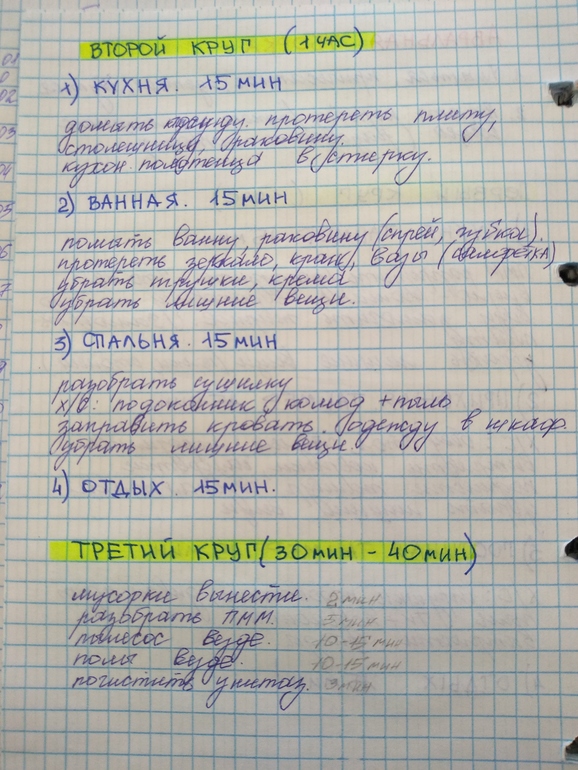 ВТОРОЙ КРУГ (1 ЧАС)
1) КУХНЯ. 15 МИН
домыть посуду. протереть плиту,
столешницы, раковину.
кухон. полотенца в стирку.
2) ВАННАЯ. 15 МИН
помыть ванну, раковину (спрей, губка).
протереть зеркало, кран, вазы (салфетка)
убрать игрушки, крема
убрать лишние вещи.
3) СПАЛЬНЯ. 15 МИН
разобрать сушилку
х/о: подоконник, комод + пыль
заправить кровать. одежду в шкаф.
убрать лишние вещи.
4) ОТДЫХ. 15 МИН.
ТРЕТИЙ КРУГ (30 МИН - 40 МИН)
мусорки вынести. 2 мин
разобрать ПММ. 5 мин
пылесос везде. 10-15 мин
полы везде. 10-15 мин
почистить унитаз. 3 мин